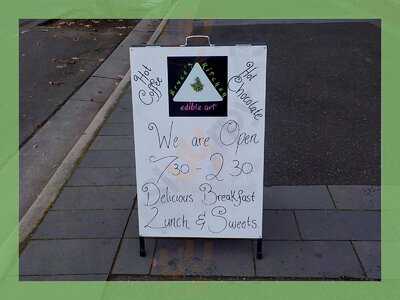 Kitchen
edible art
Hot
Coffee
Hot
Chocolate
We are Open
7 30 - 2 30
Delicious Breakfast
Lunch & Sweets